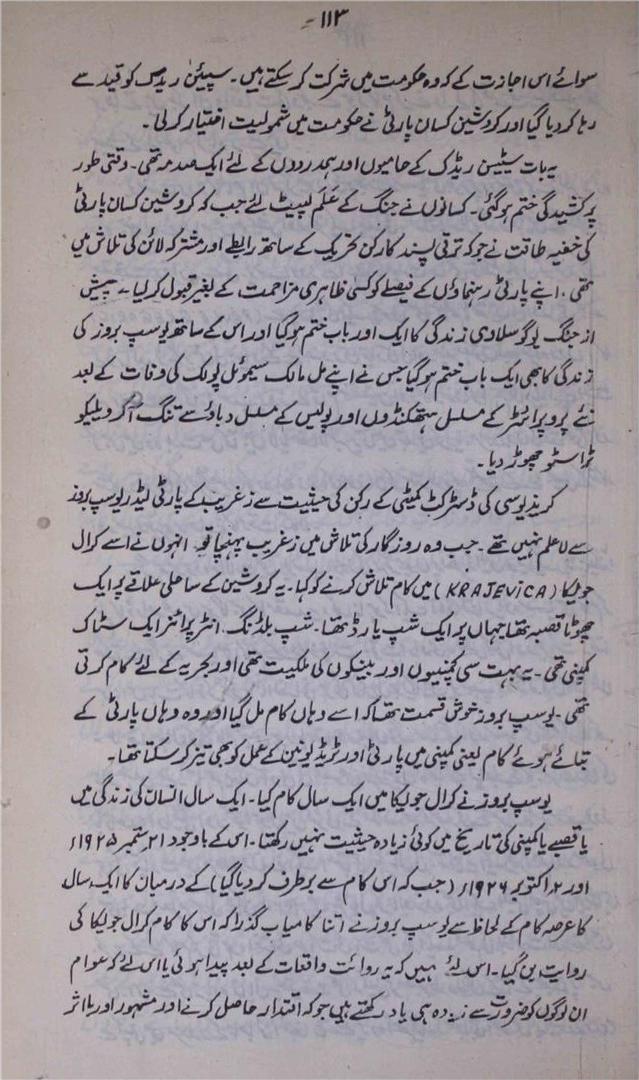 ۱۱۳-
سوائے اس اجازت کے کہ وہ حکومت میں شرکت کر سکتے ہیں۔ سٹیپن ریڈس کو قید سے
رہا کر دیا گیا اور کروشین کسان پارٹی نے حکومت میں شمولیت اختیار کر لی۔
یہ بات سٹیپن ریڈک کے حامیوں اور ہمدردوں کے لئے ایک صدمہ تھی۔ وقتی طور
پر کشیدگی ختم ہو گئی۔ کسانوں نے جنگ کے عَلَم لپیٹ لئے جب کہ کروشین کسان پارٹی
کی خفیہ طاقت نے جو کہ ترقی پسند کارکن تحریک کے ساتھ رابطے اور مشترکہ لائن کی تلاش میں
تھی، اپنے پارٹی رہنماؤں کے فیصلے کو کسی ظاہری مزاحمت کے بغیر قبول کر لیا۔ پیش
از جنگ یوگوسلاوی زندگی کا ایک اور باب ختم ہو گیا اور اس کے ساتھ یوسپ بروز کی
زندگی کا بھی ایک باب ختم ہو گیا جس نے اپنے مل مالک سیموئل پولک کی وفات کے بعد
نئے پروپرائٹر کے مسلسل ہتھکنڈوں اور پولیس کے مسلسل دباؤ سے تنگ آ کر ویلیکو
ٹراسٹو چھوڑ دیا۔
کریذیوسی کی ڈسٹرکٹ کمیٹی کے رکن کی حیثیت سے زغریب کے پارٹی لیڈر یوسپ بروز
سے لاعلم نہیں تھے۔ جب وہ روزگار کی تلاش میں زغریب پہنچا تو انہوں نے اسے کرال
جویکا (KRAJEViCA) میں کام تلاش کرنے کو کہا۔ یہ کروشین کے ساحلی علاقے پر ایک
چھوٹا قصبہ تھا جہاں پر ایک شپ یارڈ تھا۔ شپ بلڈنگ انٹرپرائنر ایک سٹاک
کمپنی تھی۔ یہ بہت سی کمپنیوں اور بینکوں کی ملکیت تھی اور بحریہ کے لئے کام کرتی
تھی۔ یوسپ بروز خوش قسمت تھا کہ اسے وہاں کام مل گیا اور وہ وہاں پارٹی کے
بتائے ہوئے کام یعنی کمپنی میں پارٹی اور ٹریڈ یونین کے عمل کو بھی تیز کر سکتا تھا۔
یوسپ بروز نے کرال جویکا میں ایک سال کام کیا۔ ایک سال انسان کی زندگی میں
یا قصبے یا کمپنی کی تاریخ میں کوئی زیادہ حیثیت نہیں رکھتا۔ اس کے باوجود ۲۱ ستمبر ۱۹۲۵ء
اور ۲ اکتوبر ۱۹۲۶ء (جب کہ اس کام سے برطرف کر دیا گیا) کے درمیان کا ایک سال
کا عرصہ کام کے لحاظ سے یوسپ بروز نے اتنا کامیاب گذرا کہ اس کا کام کرال جویکا کی
روایت بن گیا۔ اس لئے نہیں کہ یہ روائت واقعات کے بعد پیدا ہوئی یا اس لئے کہ عوام
ان لوگوں کو ضرورت سے زیادہ ہی یاد رکھتے ہیں جو کہ اقتدار حاصل کرنے اور مشہور اور بااثر